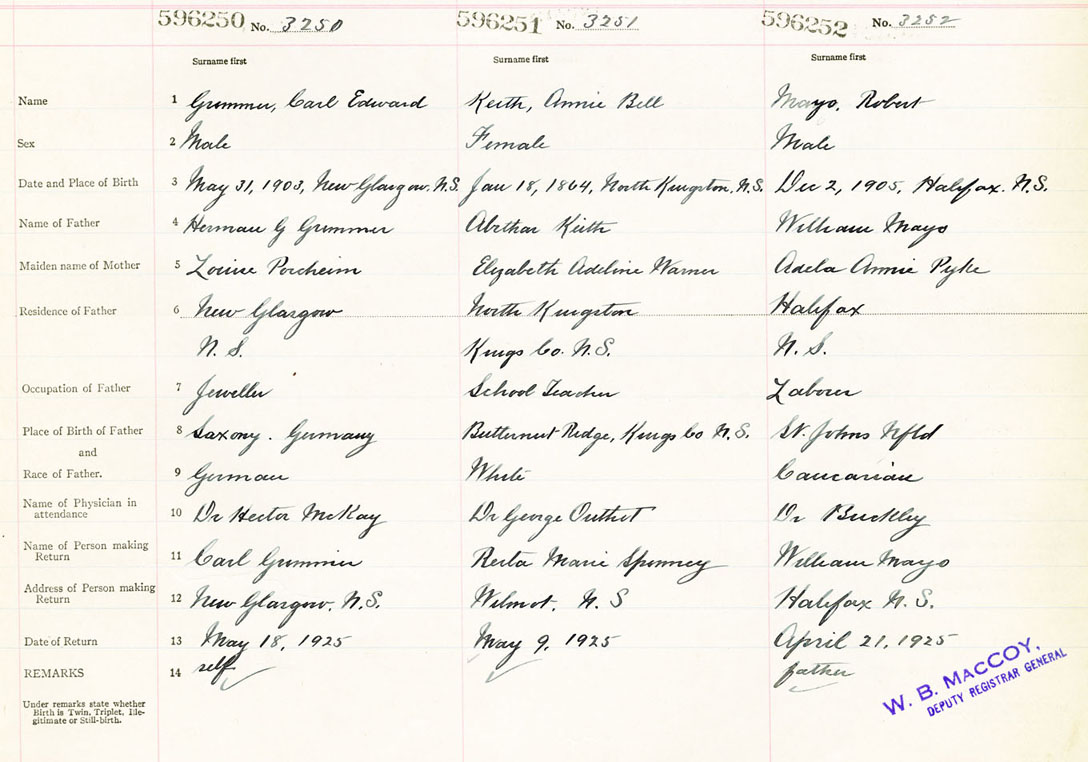 596250 No. 3250 596251 No. 3251 596252 No. 3252
Surname first Surname first Surname first
Name 1 Grummer, Carl Edward Keith, Annie Bell Mayo, Robert
Sex 2 Male Female Male
Date and Place of Birth 3 May 31, 1903, New Glasgow, N.S. Jan 18, 1864, North Kingston, N.S. Dec 2, 1905, Halifax. N.S.
Name of Father 4 Herman G Grummer Keith William Mayo
Maiden name of Mother 5 Louise Elizabeth Adeline Warner Adela Annie Pyke
Residence of Father 6 New Glasgow North Kingston Halifax
N. S. Kings Co. N.S. N. S.
Occupation of Father 7 Jeweller School Teacher Laborer
Place of Birth of Father 8 Saxony. Germany Butternut Ridge, Kings Co N.S. St. Johns Nfld
and
Race of Father. 9 German White Caucasian
Name of Physician in
attendance 10 Dr Hector McKay Dr George Dr Buckley
Name of Person making
Return 11 Carl Grummer Marie Spinney William Mayo
Address of Person making
Return 12 New Glasgow, N.S. Wilmot, N. S Halifax N. S.
Date of Return 13 May 18, 1925 May 9, 1925 April 21, 1925
REMARKS 14 self father
Under remarks state whether
Birth is Twin, Triplet, Ille-
gitimate or Still-birth.
W. B. MACCOY,
DEPUTY REGISTRAR GENERAL